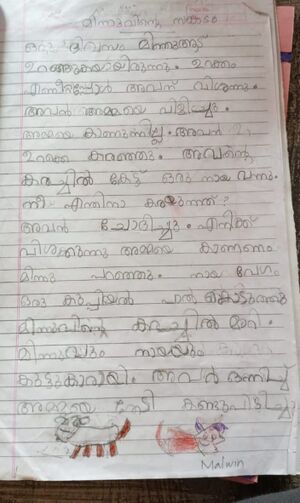 മിന്നുവിന്റെ സങ്കടം
ഒരു ദിവസം മിന്നുആട്
ഉറങ്ങുകയായിരുന്നു. ഉറക്കം
എണീരപ്പോൾ അവന് വിശന്നു.
അവൻ അമ്മയെ വിളിച്ചു.
അമ്മയെ കാണുന്നില്ല. അവൻ
ഉറക്കെ കരഞ്ഞു. അവന്റെ
കരച്ചിൽ കേട്ട് ഒരു നായ വന്നു.
നീ എന്തിനാ കരയുന്നത്?
അവൻ ചോദിച്ചു. എനിക്ക്
വിശക്കുന്നു അമ്മയെ കാണണം
മിന്നു പറഞ്ഞു. നായ വേഗം
ഒരു കുപ്പിയൽ പാൽ കൊടുത്തു
മിന്നുവിന്റെ കരച്ചിൽ മാറി.
മിന്നുവും നായയും
കൂട്ടുകാരായി. അവർ ഒന്നിച്ച്
അമ്മയെ കണ്ടുപിടിച്ചു
Malwin